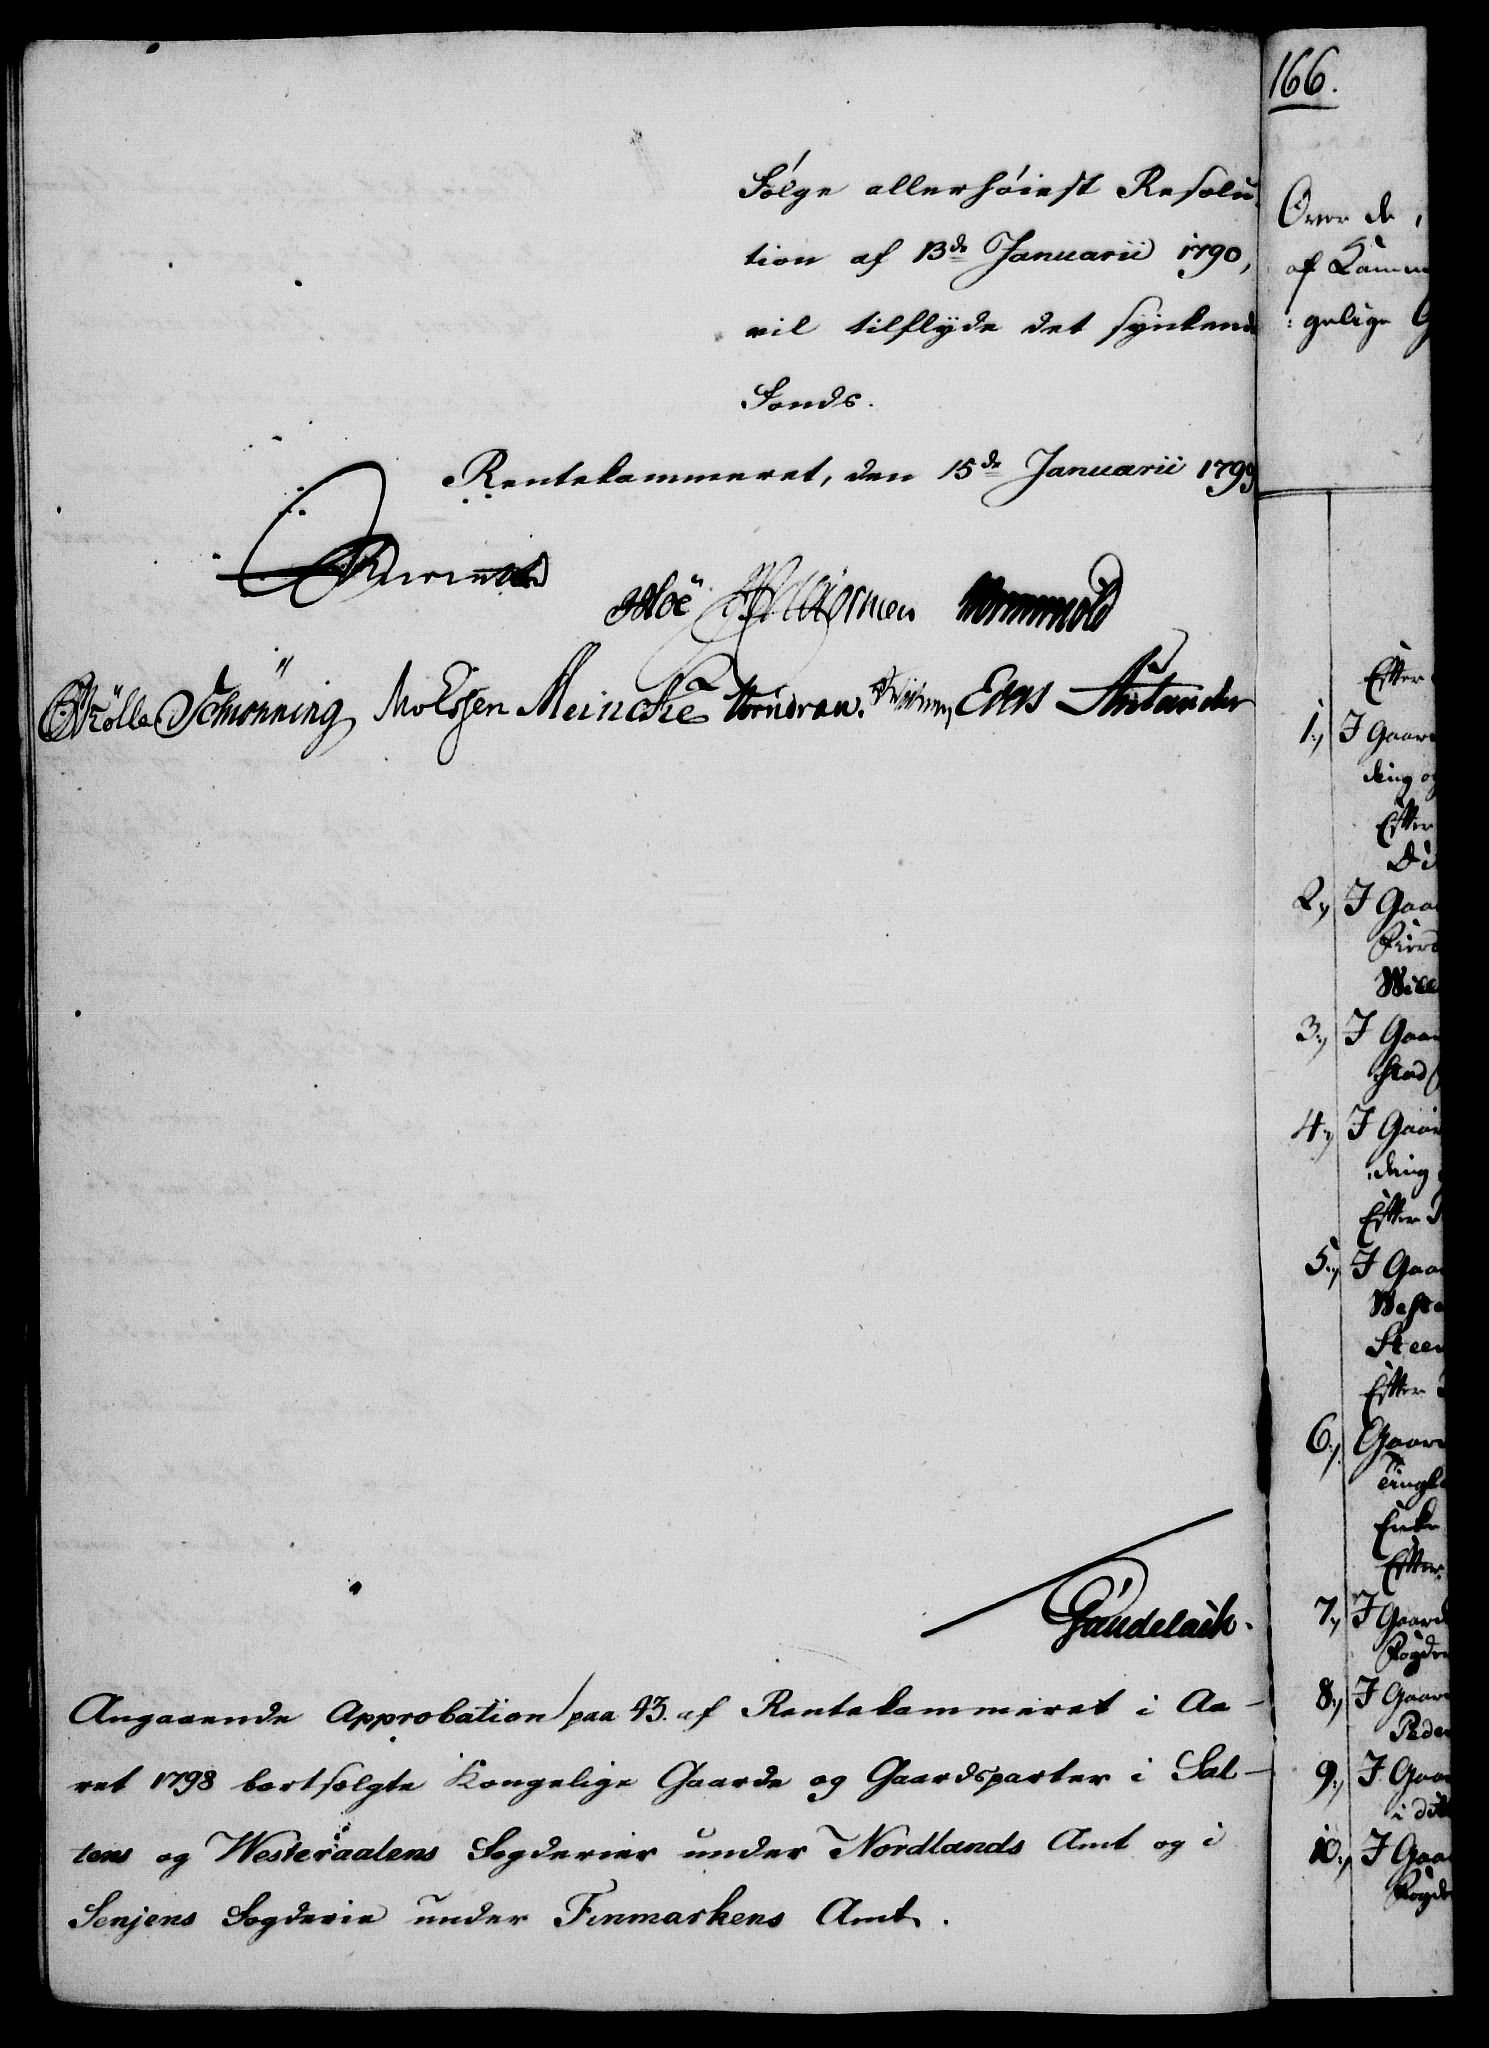 følge allerhøiest Resolu-
tion af 13de Januarii 1790,
vil tilflyde det synkende
Fonds.
Rentekammeret, den 15de Januarii 1799
Hoë
Rölle Schiønning Molssen Meincke Wormdran. Evers
Gaudelach.
Angaaende Approbation paa 43. af Rentekammeret i Aa-
ret 1798 bortsolgte Kongelige Gaarde og Gaardsparter i Sal-
tens og Westeraalens Fogderier under Nordlands Amt og i
Senjens Fogderie under Finmarkens Amt.
166.
Over de
af Kamm
gelige G
Efter
1.) I Gaar
ding og
Efter
2.) I Gaa
Will
3.) I Gaar
4.) I Gaar
ding
Efter
5.) I Gaa
Weste
Steen
Efter
6.) Gaar
Enke
Efter
7.) I Gaard
Fogder
8.) I Gaar
Peder
9.) I Gaa
i dit
10.) I Gaa
Fogde